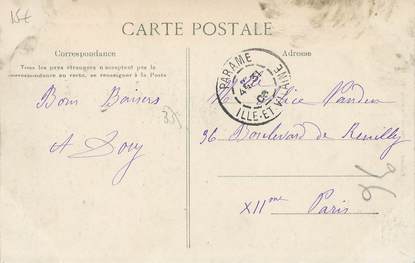 15€
CARTE POSTALE
Correspondance
Tous les pays étrangers n'acceptent pas la
correspondance au verso, se renseigner à la Poste
Adresse
PARAMÉ
ILLE-ET-VILAINE
Bons Baisers
A Dory
35
36 Boulevard de Reuilly
96
XIIme Paris